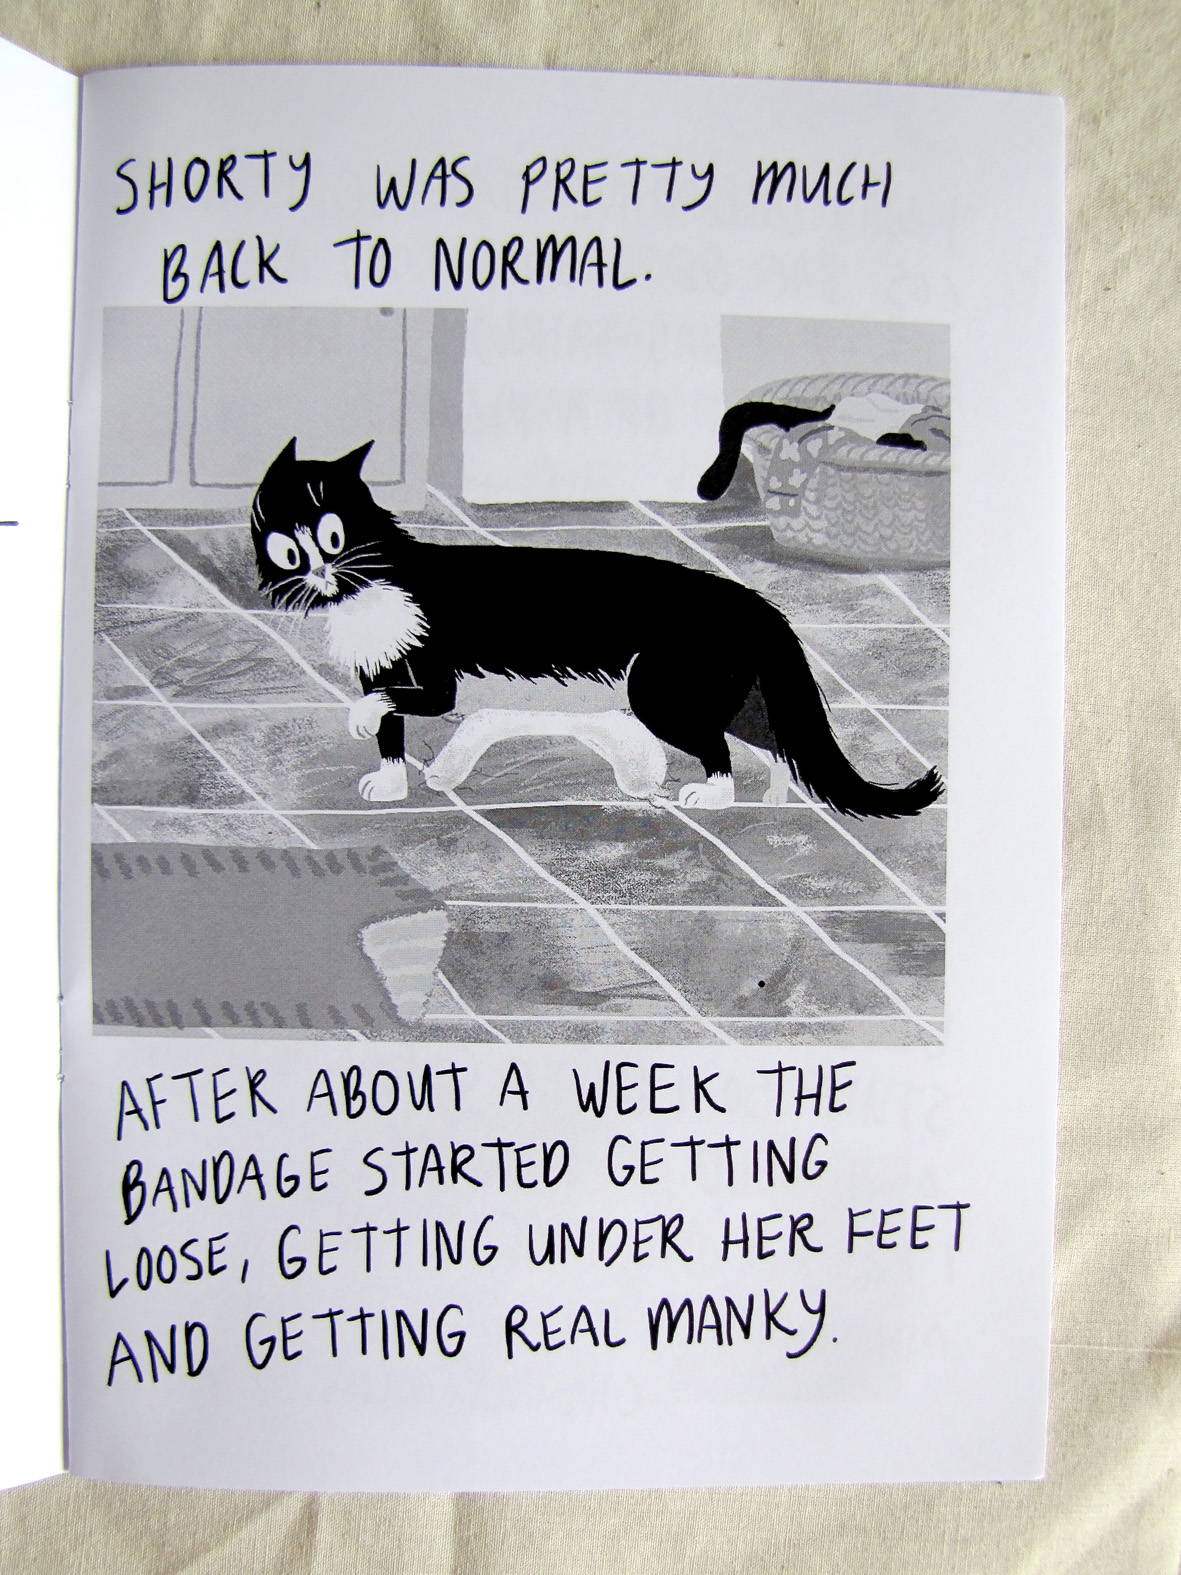 SHORTY WAS PRETTY MUCH
BACK TO NORMAL.
AFTER ABOUT A WEEK THE
BANDAGE STARTED GETTING
LOOSE, GETTING UNDER HER FEET
AND GETTING REAL MANKY.